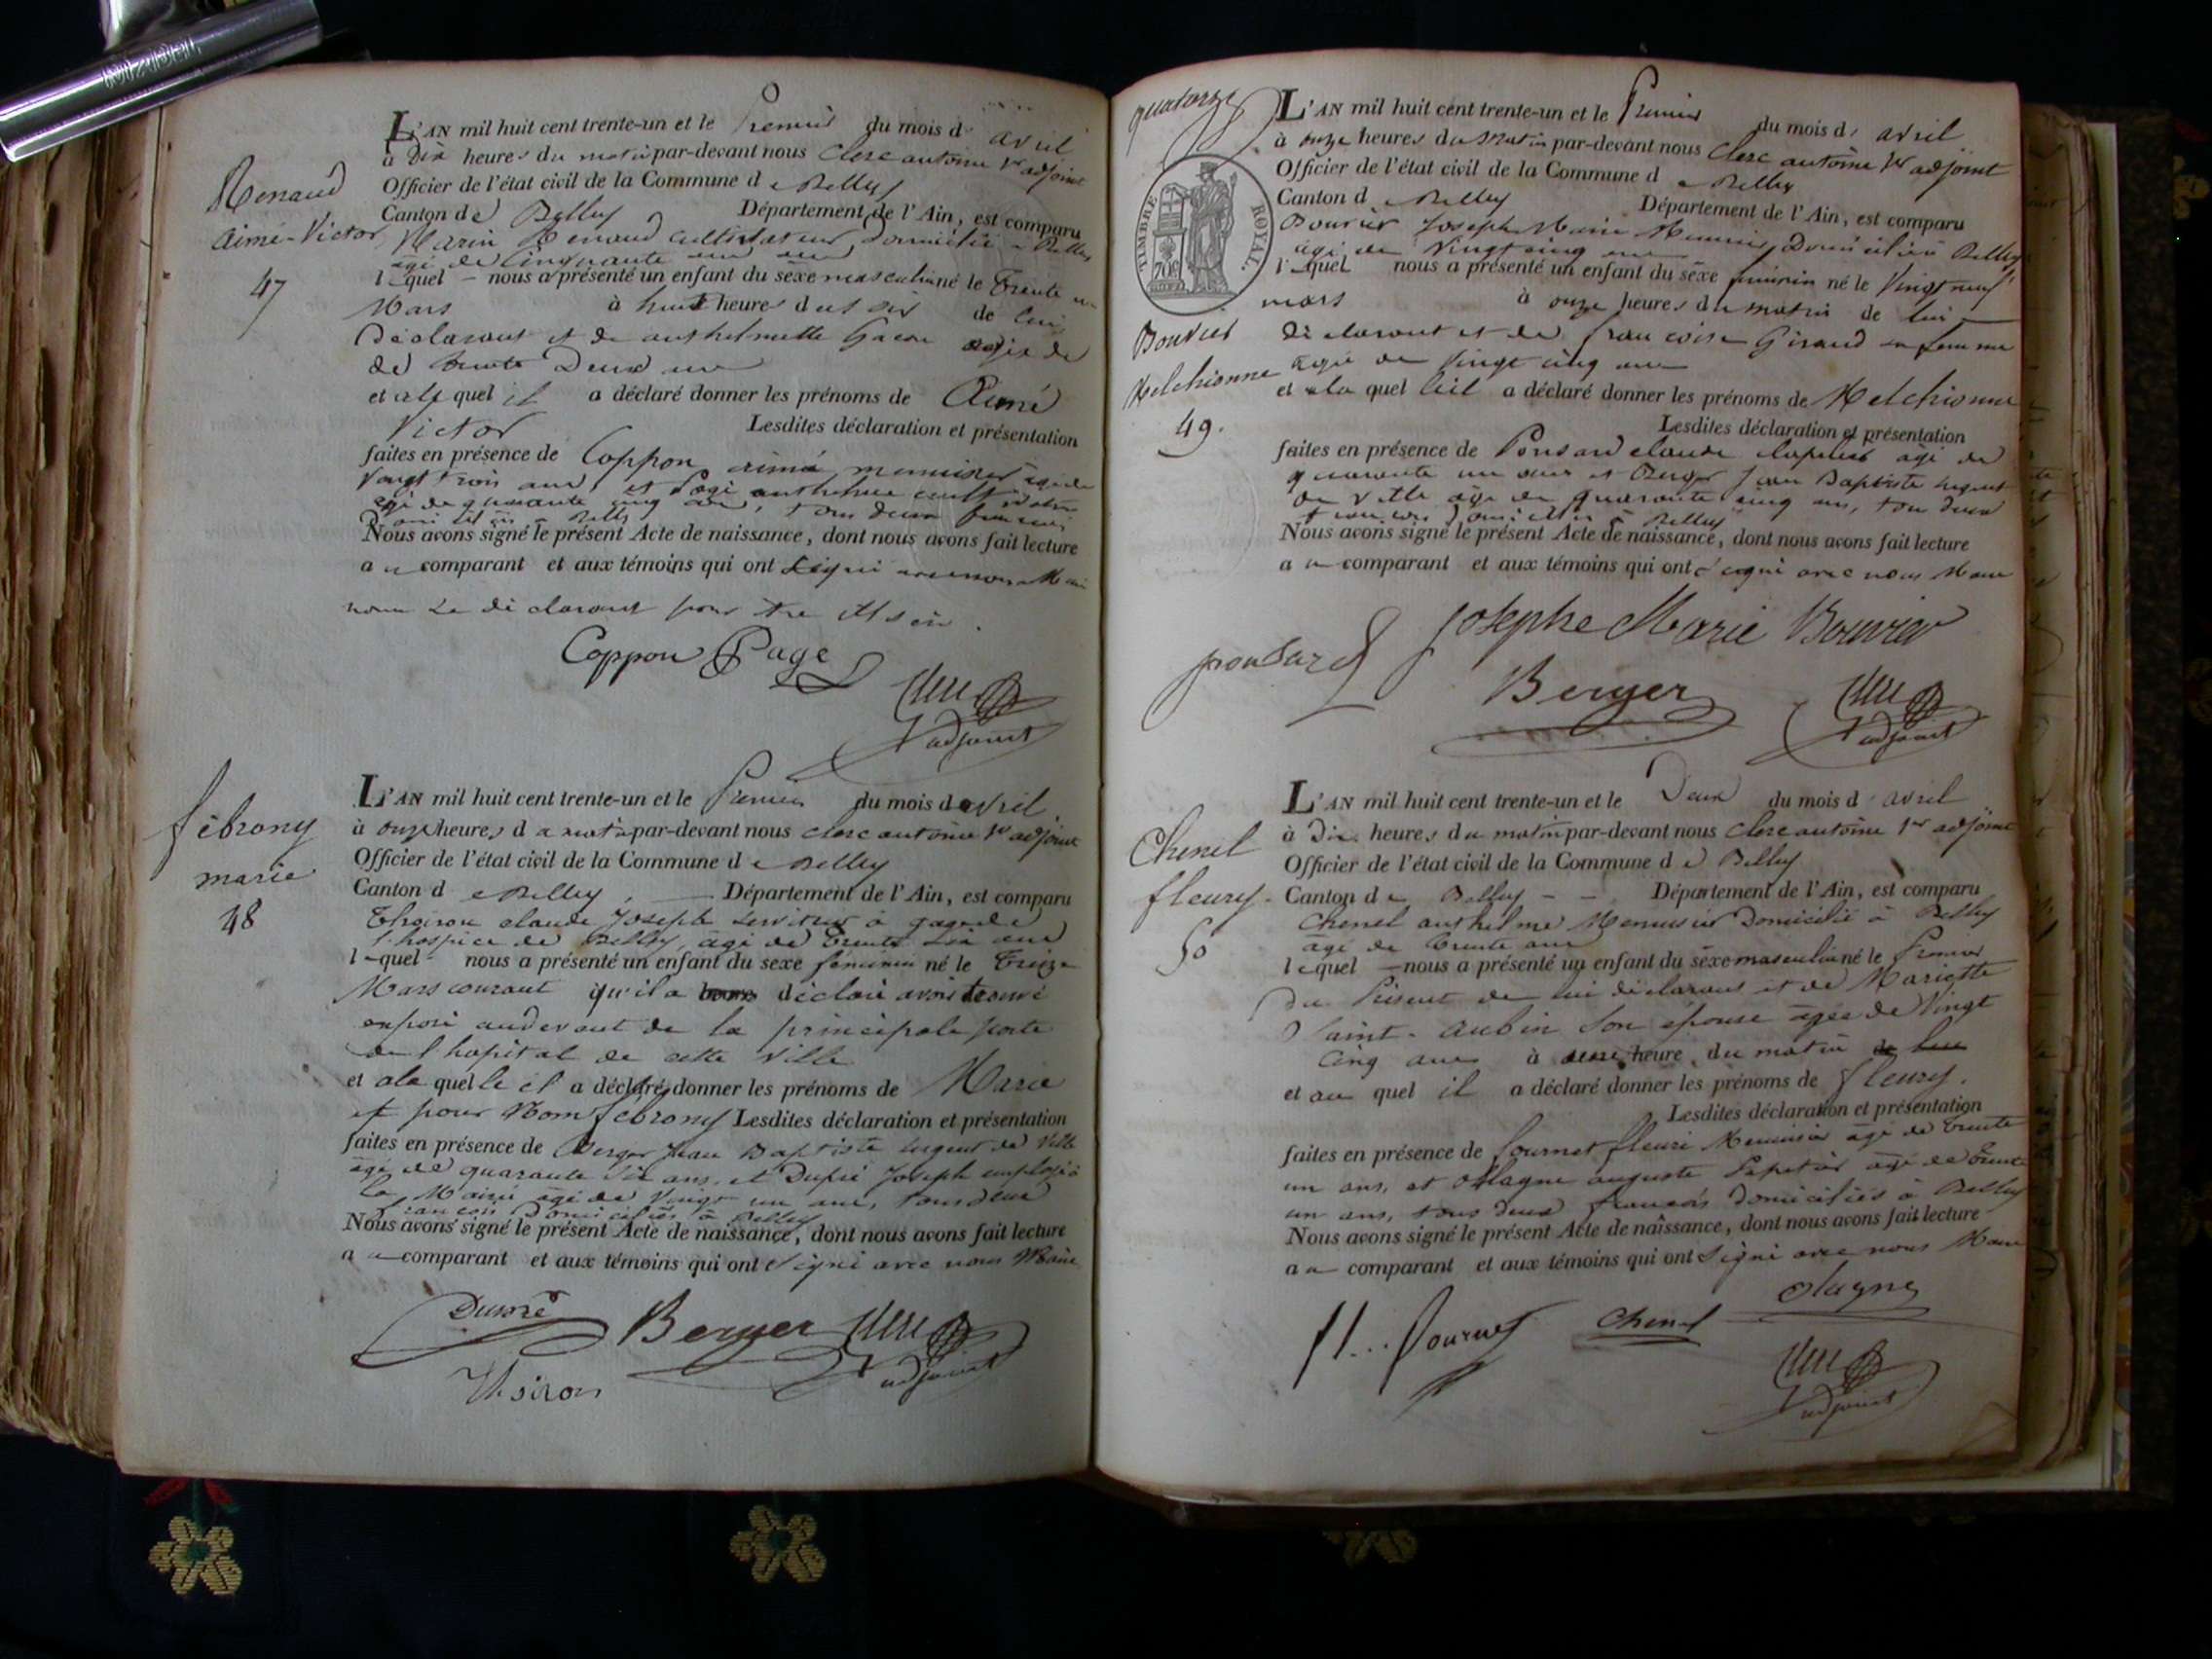 Renaud
Aimé-Victor
47
L'AN mil huit cent trente-un et le Premier du mois d' avril
à Dix heures du matin par-devant nous Clerc antoine 1er adjoint
Officier de l'état civil de la Commune de Belley
Canton de Belley Département de l'Ain, est comparu
Marin Renaud Cultivateur, Domicilié à Belley
agé de Cinquante un ans
lequel nous a présenté un enfant du sexe masculin né le Trente un
Mars à huit heures du soir de lui
Déclarant et de anthelmette agée de
de trente Deux ans
et auquel il a déclaré donner les prénoms de Aimé
Victor Lesdites déclaration et présentation
faites en présence de Coppon aimé, menuisier agé de
Vingt trois ans, et Page anthelme cultivateur
agé de quarante cinq ans, tous deux francais
Domiciliés à Belley
Nous avons signé le présent Acte de naissance, dont nous avons fait lecture
au comparant et aux témoins qui ont signé avec nous Maire
non Le déclarant pour
Coppon Page
Clerc
adjoint
fébrony
marie
48
L'AN mil huit cent trente-un et le Premier du mois d'avril
à onze heures du matin par-devant nous clerc antoine 1er adjoint
Officier de l'état civil de la Commune de Belley
Canton de Belley, Département de l'Ain, est comparu
Thoiron claude Joseph serviteur à gage de
l'hospice de Belley, agé de trente six ans
lequel nous a présenté un enfant du sexe féminin né le Treize
Mars courant qu'il a déclaré avoir trouvé
exposé audevant de la principale porte
de l'hopital de cette ville
et a laquelle il a déclaré donner les prénoms de Marie
et pour Nom fébrony Lesdites déclaration et présentation
faites en présence de Berger Jean Baptiste sergent de ville
agé de quarante Six ans, et Dupré Joseph employé à
la Mairie agé de Vingt un ans, tous deux
francois Domiciliés à Belley
Nous avons signé le présent Acte de naissance, dont nous avons fait lecture
au comparant et aux témoins qui ont signé avec nous Maire
Dupré Berger Clerc
adjoint
Thoiron
quatorze
TIMBRE ROYAL.
70c
Bouvier
Melchionne
49.
L'AN mil huit cent trente-un et le Premier du mois d' avril
à onze heures du Matin par-devant nous Clerc antoine 1er adjoint
Officier de l'état civil de la Commune de Belley
Canton de Belley Département de l'Ain, est comparu
Bouvier Joseph Marie Menuisier, Domicilié à Belley
agé de Vingt cinq ans
lequel nous a présenté un enfant du sexe féminin né le Vingt neuf
mars à onze heures du matin de lui
déclarant et de francoise Giraud sa femme
agée de Vingt cinq ans
et a la quel il a déclaré donner les prénoms de Melchionne
Lesdites déclaration et présentation
faites en présence de Ponsard claude agé de
quarante un ans et Berger Jean Baptiste sergent
de Ville agé de quarante cinq ans, tous deux
francois Domiciliés à Belley
Nous avons signé le présent Acte de naissance, dont nous avons fait lecture
au comparant et aux témoins qui ont signé avec nous Maire
Josephe Marie Bouvier
ponsard
Berger Clerc
adjoint
Chenel
fleury.
50
L'AN mil huit cent trente-un et le Deux du mois d' avril
à Dix heures du matin par-devant nous Clerc antoine 1er adjoint
Officier de l'état civil de la Commune de Belley
Canton de Belley Département de l'Ain, est comparu
Chenel anthelme Menuisier Domicilié à Belley
agé de trente ans
lequel nous a présenté un enfant du sexe masculin né le Premier
du Présent de lui déclarant et de Mariette
Saint-aubin Son épouse agée de Vingt
Cinq ans à heure du matin de lui
et au quel il a déclaré donner les prénoms de fleury.
Lesdites déclaration et présentation
faites en présence de fournet fleuri Menuisier agé de trente
un ans, et ollagne auguste agé de trente
un ans, tous deux francais Domiciliés à Belley
Nous avons signé le présent Acte de naissance, dont nous avons fait lecture
au comparant et aux témoins qui ont signé avec nous Maire
ollagne
fl... fournet Chenel
Clerc
adjoint